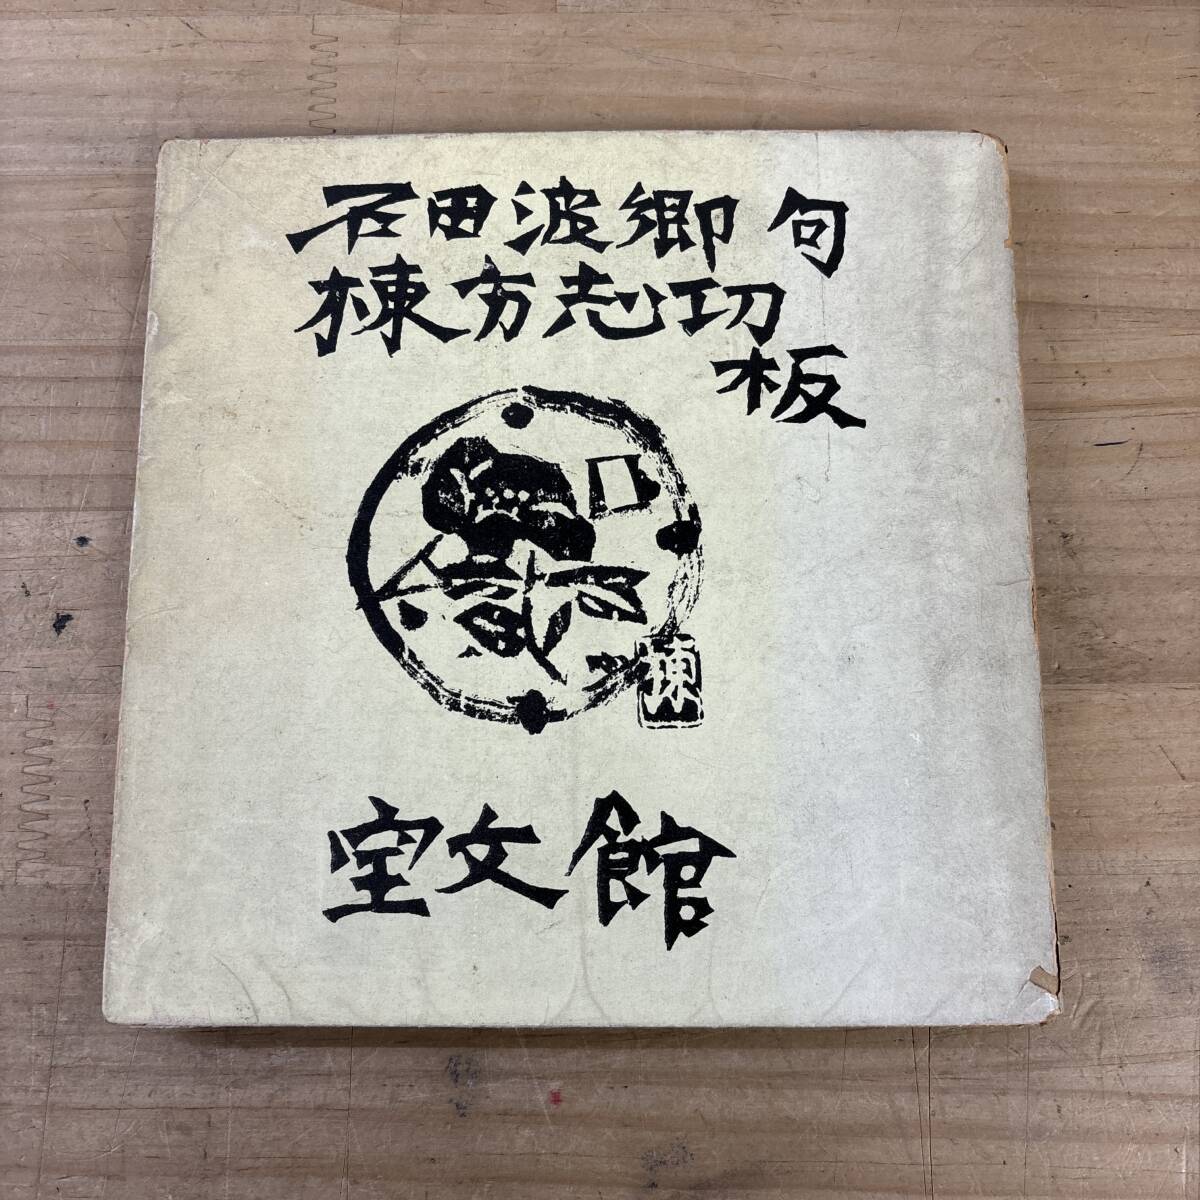 石田波郷 句
棟方志功
板
棟
宝文館